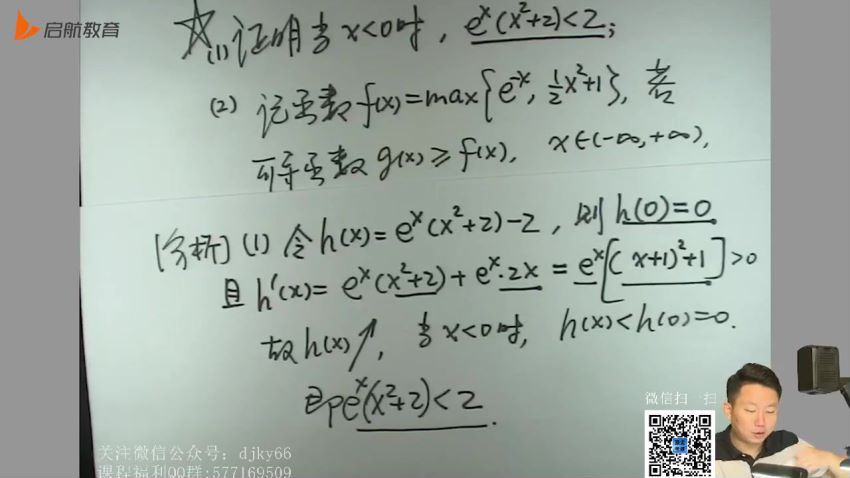 启航教育
☆(1)证明当x<0时, eˣ(x²+2)<2;
(2) 记函数f(x)=max{e⁻ˣ, ½x²+1}, 若
可导函数g(x)≥f(x), x∈(-∞,+∞),
[分析](1) 令h(x)=eˣ(x²+2)-2, 则h(0)=0
且h'(x)=eˣ(x²+2)+eˣ·2x=eˣ[(x+1)²+1]>0
故h(x)↗, 当x<0时, h(x)<h(0)=0.
即eˣ(x²+2)<2.
微信扫一扫
关注微信公众号: djky66
课程福利QQ群:577169509